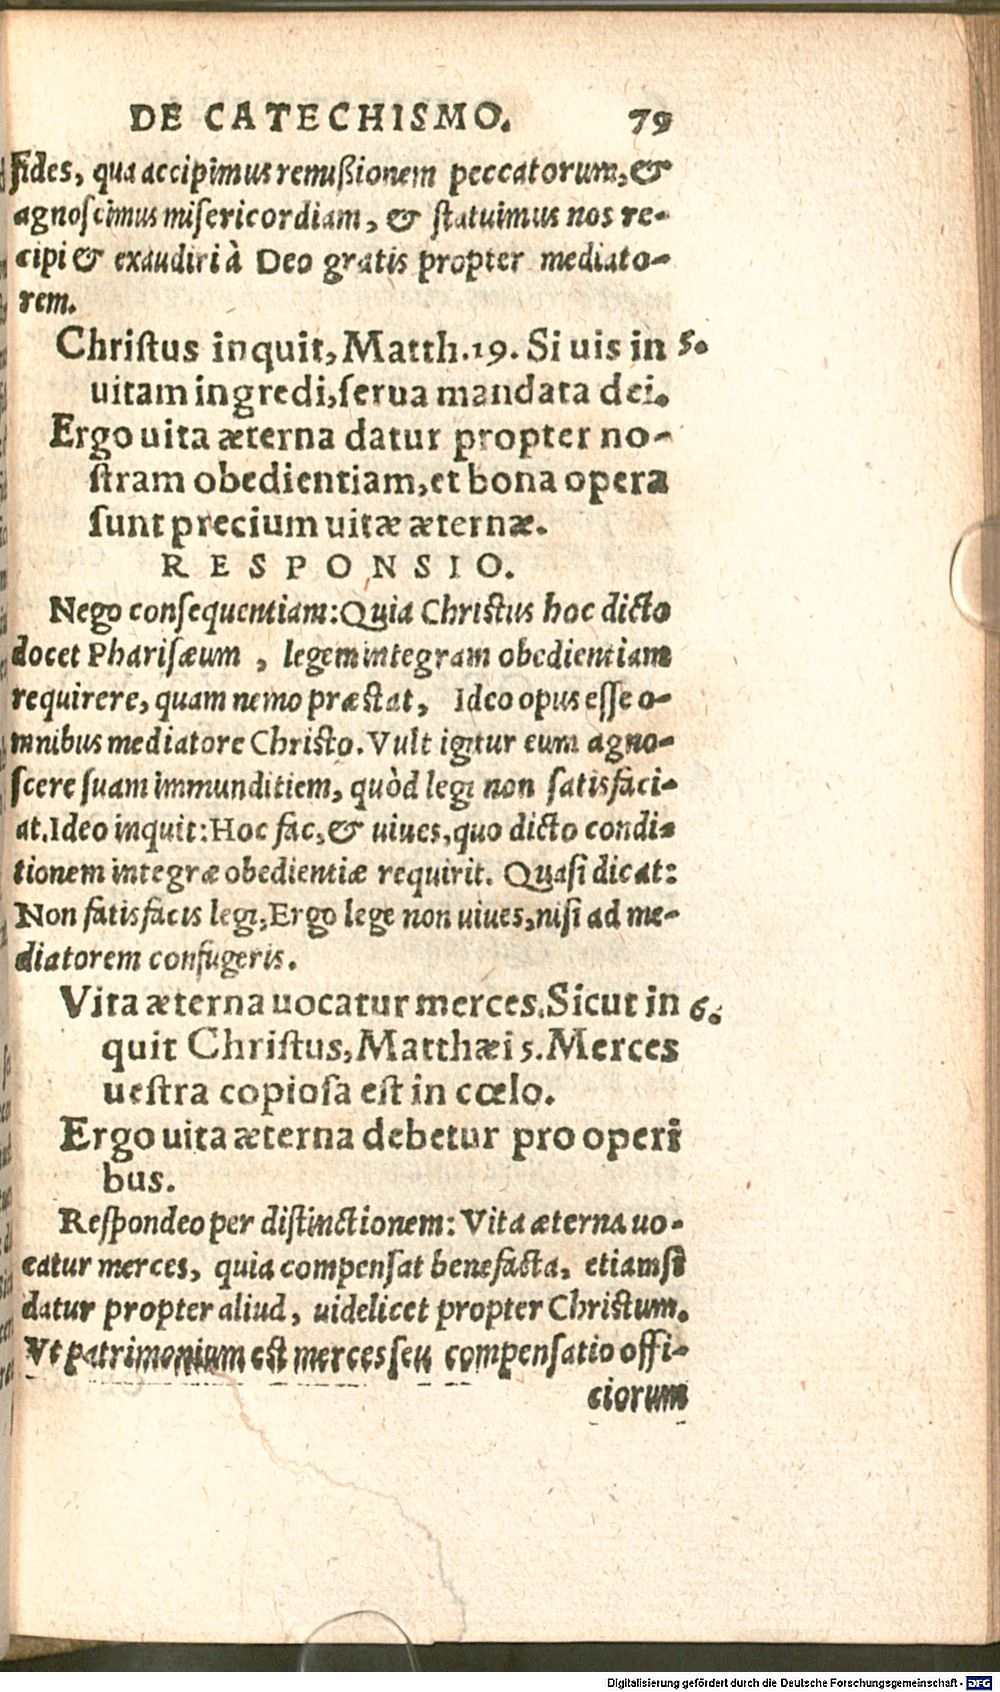 DE CATECHISMO. 79
fides, qua accipimus remißionem peccatorum, &
agnoscimus misericordiam, & statuimus nos re-
cipi & exaudiri à Deo gratis propter mediato-
rem.
Christus inquit, Matth. 19. Si uis in 5.
uitam ingredi, serua mandata dei.
Ergo uita æterna datur propter no-
stram obedientiam, et bona opera
sunt precium uitæ æternæ.
RESPONSIO.
Nego consequentiam: Quia Christus hoc dicto
docet Pharisæum, legem integram obedientiam
requirere, quam nemo præstat, Ideo opus esse o-
mnibus mediatore Christo. Vult igitur eum agno-
scere suam immunditiem, quòd legi non satisfaci-
at. Ideo inquit: Hoc fac, & uiues, quo dicto condi-
tionem integræ obedientiæ requirit. Quasi dicat:
Non satisfacis legi, Ergo lege non uiues, nisi ad me-
diatorem confugeris.
Vita æterna uocatur merces. Sicut in 6.
quit Christus, Matthæi 5. Merces
uestra copiosa est in cœlo.
Ergo uita æterna debetur pro operi
bus.
Respondeo per distinctionem: Vita æterna uo-
catur merces, quia compensat benefacta, etiamsi
datur propter aliud, uidelicet propter Christum.
Vt patrimonium est merces seu compensatio offi-
ciorum
Digitalisierung gefördert durch die Deutsche Forschungsgemeinschaft - DFG